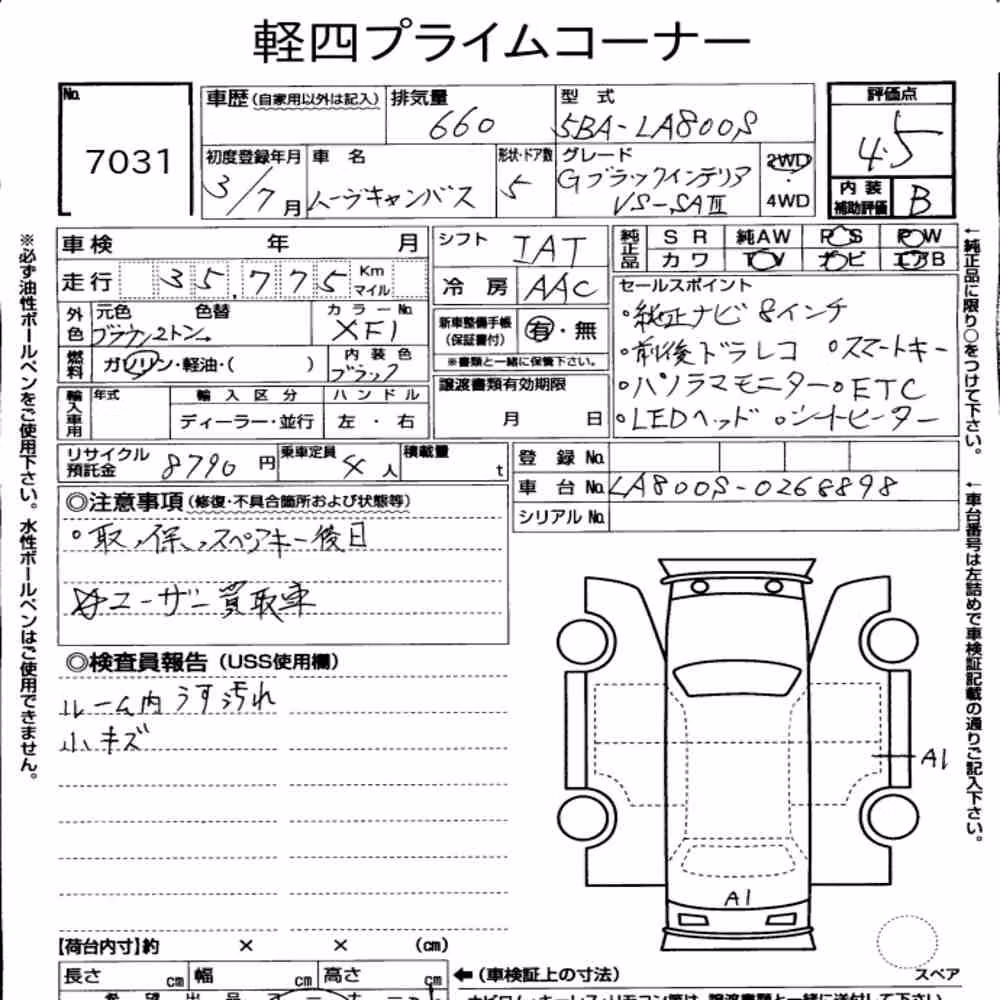 軽四プライムコーナー
No. 7031
車歴(自家用以外は記入) 排気量 660 型式 5BA-LA800S
評価点 4.5
初度登録年月 3/7月 車名 ムーヴキャンバス 形状・ドア数 5 グレード Gブラックインテリア VS-SAⅢ 2WD・4WD
内装補助評価 B
車検 年 月
シフト IAT
純正品 SR 純AW PS PW
カワ TV ナビ エアB
走行 35,775 Km マイル
冷房 AAC
外色 元色 色替 カラーNo.
ブラウン2トン XF1
新車整備手帳(保証書付) 有・無
※書類と一緒に保管下さい。
燃料 ガソリン・軽油・( ) 内装色 ブラック
セールスポイント
・純正ナビ 8インチ
・前後ドラレコ ・スマートキー
・パノラマモニター ・ETC
・LEDヘッド ・シートヒーター
輸入車用 年式 輸入区分 ハンドル
ディーラー・並行 左・右
譲渡書類有効期限
月 日
リサイクル預託金 8790円 乗車定員 4人 積載量 t
登録No.
車台No. LA800S-0268898
シリアルNo.
◎注意事項(修復・不具合箇所および状態等)
・取、保、スペアキー後日
☆ユーザー買取車
◎検査員報告(USS使用欄)
ルーム内うす汚れ
小キズ
A1
A1
【荷台内寸】約 × × (cm)
長さ cm 幅 cm 高さ cm
←(車検証上の寸法)
スペア
※必ず油性ボールペンをご使用下さい。水性ボールペンはご使用できません。
←純正品に限り○をつけて下さい。
←車台番号は左詰めで車検証記載の通りご記入下さい。